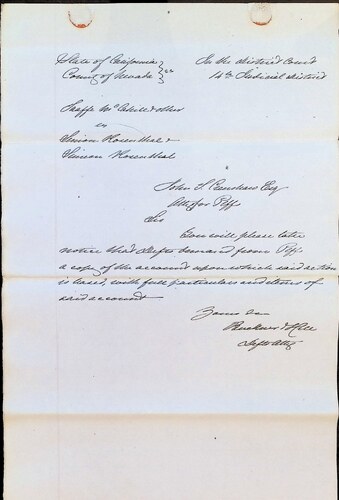 State of California } ss In the District Court
County of Nevada } 14th Judicial District
vs
Simon Rosenthal &
Rosenthal
John Esq
Atty for Plffs
Sir
You will please take
notice that Defts demand from Plffs
a copy of the account upon which said action
is based, with full particulars and items of
said account
Yours &c
& Hill
Defts Atty